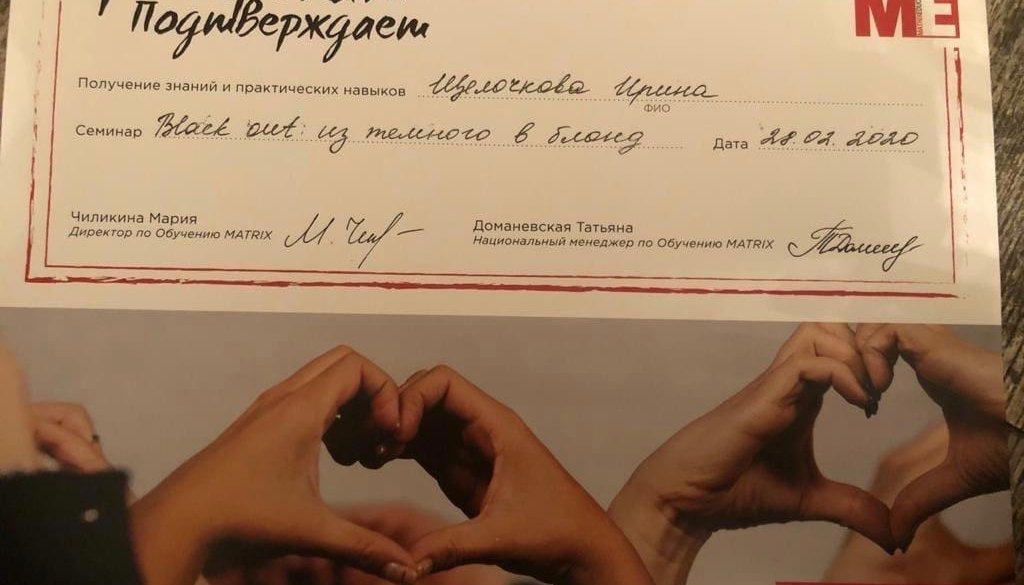 подтверждает
ME
Получение знаний и практических навыков Щелочкова Ирина
ФИО
Семинар Black out: из темного в блонд Дата 28.02.2020
Чиликина Мария
Директор по Обучению MATRIX
Доманевская Татьяна
Национальный менеджер по Обучению MATRIX